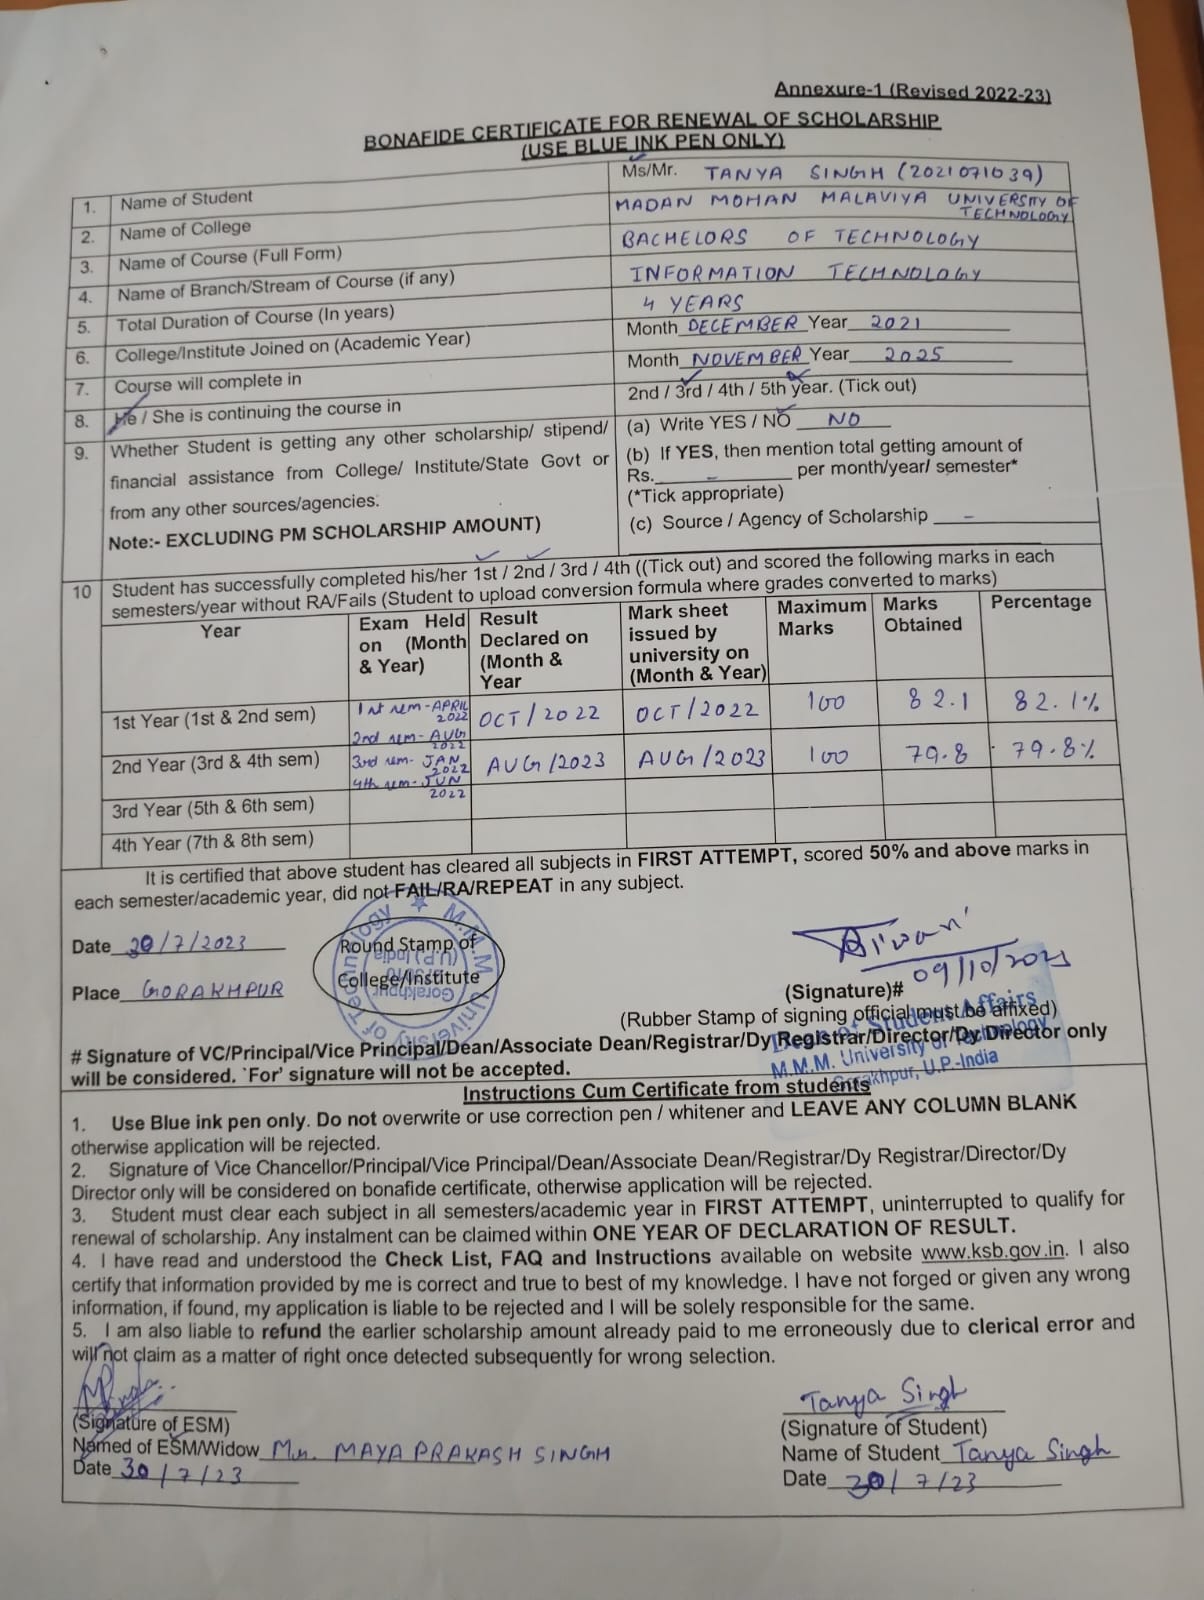 Annexure-1 (Revised 2022-23)
BONAFIDE CERTIFICATE FOR RENEWAL OF SCHOLARSHIP
(USE BLUE INK PEN ONLY)
1. Name of Student Ms/Mr. TANYA SINGH (2021071039)
2. Name of College MADAN MOHAN MALAVIYA UNIVERSITY OF
TECHNOLOGY
3. Name of Course (Full Form) BACHELORS OF TECHNOLOGY
4. Name of Branch/Stream of Course (if any) INFORMATION TECHNOLOGY
5. Total Duration of Course (In years) 4 YEARS
6. College/Institute Joined on (Academic Year) Month DECEMBER Year 2021
7. Course will complete in Month NOVEMBER Year 2025
8. He / She is continuing the course in 2nd / 3rd / 4th / 5th year. (Tick out)
9. Whether Student is getting any other scholarship/ stipend/
financial assistance from College/ Institute/State Govt or
from any other sources/agencies.
Note:- EXCLUDING PM SCHOLARSHIP AMOUNT)
(a) Write YES / NO NO
(b) If YES, then mention total getting amount of
Rs. - per month/year/ semester*
(*Tick appropriate)
(c) Source / Agency of Scholarship -
10 Student has successfully completed his/her 1st / 2nd / 3rd / 4th ((Tick out) and scored the following marks in each
semesters/year without RA/Fails (Student to upload conversion formula where grades converted to marks)
Year
Exam Held
on (Month
& Year)
Result
Declared on
(Month &
Year
Mark sheet
issued by
university on
(Month & Year)
Maximum
Marks
Marks
Obtained
Percentage
1st Year (1st & 2nd sem)
1st sem - APRIL
2022
2nd sem - AUG
2022
OCT / 2022 OCT / 2022 100 82.1 82.1%
2nd Year (3rd & 4th sem)
3rd sem - JAN
2022
4th sem - JUN
2022
AUG /2023 AUG /2023 100 79.8 79.8%
3rd Year (5th & 6th sem)
4th Year (7th & 8th sem)
It is certified that above student has cleared all subjects in FIRST ATTEMPT, scored 50% and above marks in
each semester/academic year, did not FAIL/RA/REPEAT in any subject.
Date 30/7/2023
Place GORAKHPUR
Round Stamp of
College/Institute
M.M.M. University of Technology
Gorakhpur
(U.P.) India
09/10/2023
(Signature)#
(Rubber Stamp of signing official must be affixed)
Dean of Student Affairs
M.M.M. University of Technology
Gorakhpur, U.P.-India
# Signature of VC/Principal/Vice Principal/Dean/Associate Dean/Registrar/Dy Registrar/Director/Dy Director only
will be considered. `For' signature will not be accepted.
Instructions Cum Certificate from students
1. Use Blue ink pen only. Do not overwrite or use correction pen / whitener and LEAVE ANY COLUMN BLANK
otherwise application will be rejected.
2. Signature of Vice Chancellor/Principal/Vice Principal/Dean/Associate Dean/Registrar/Dy Registrar/Director/Dy
Director only will be considered on bonafide certificate, otherwise application will be rejected.
3. Student must clear each subject in all semesters/academic year in FIRST ATTEMPT, uninterrupted to qualify for
renewal of scholarship. Any instalment can be claimed within ONE YEAR OF DECLARATION OF RESULT.
4. I have read and understood the Check List, FAQ and Instructions available on website www.ksb.gov.in. I also
certify that information provided by me is correct and true to best of my knowledge. I have not forged or given any wrong
information, if found, my application is liable to be rejected and I will be solely responsible for the same.
5. I am also liable to refund the earlier scholarship amount already paid to me erroneously due to clerical error and
will not claim as a matter of right once detected subsequently for wrong selection.
(Signature of ESM)
Named of ESM/Widow MAYA PRAKASH SINGH
Date 30/7/23
Tanya Singh
(Signature of Student)
Name of Student Tanya Singh
Date 30/7/23